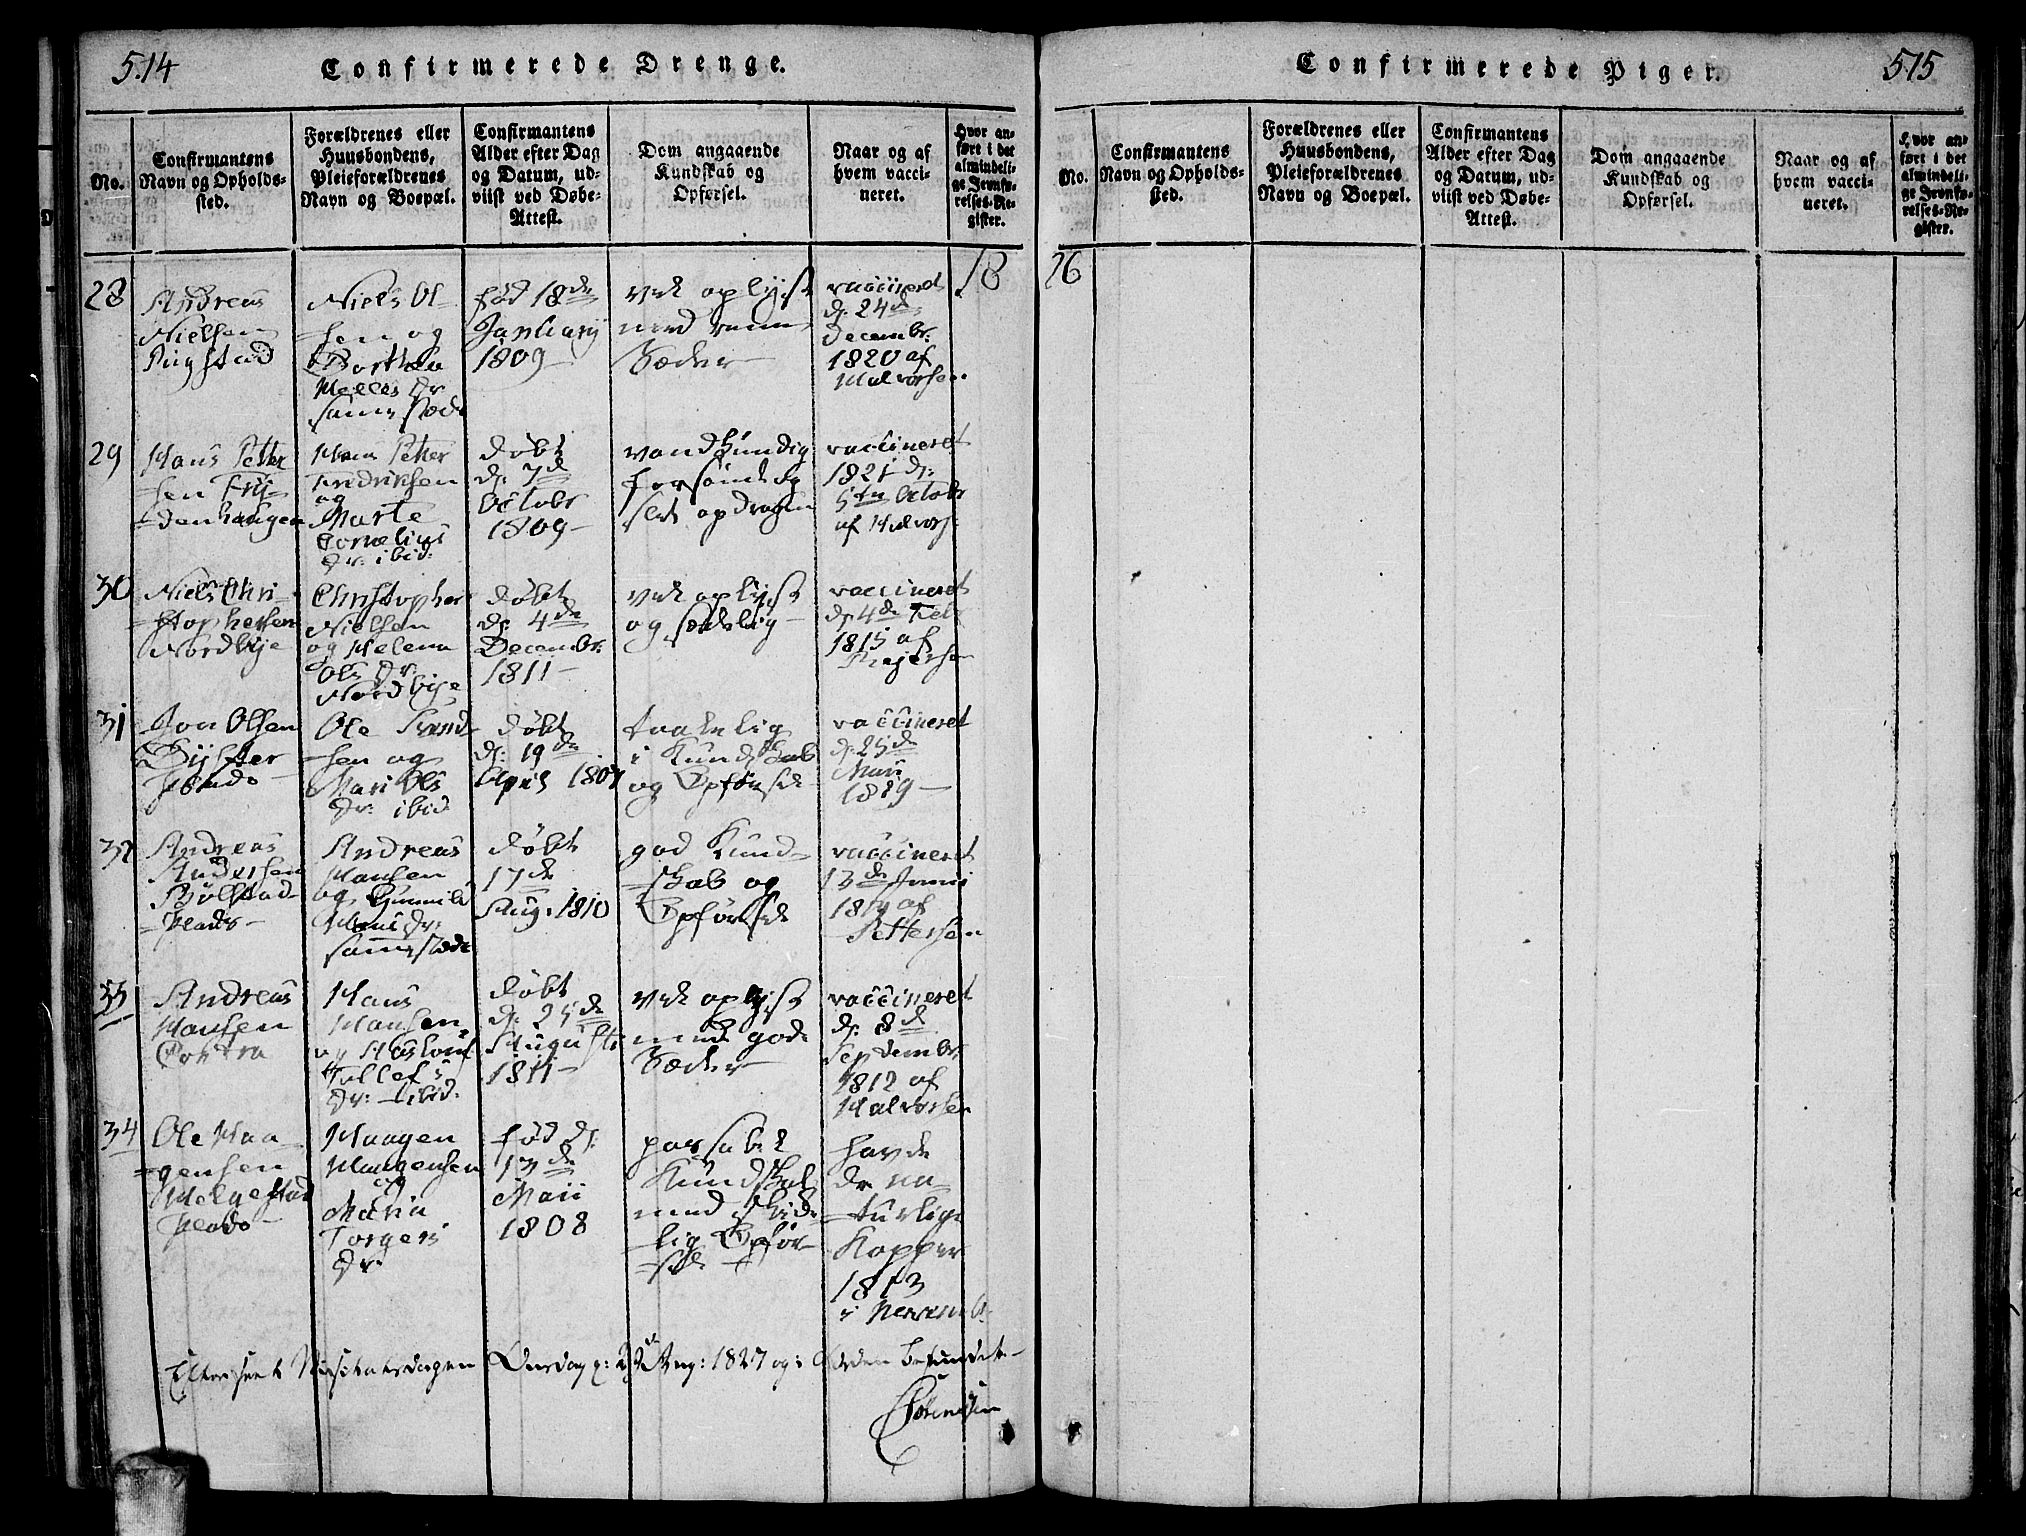 514
Confirmerede Drenge.
No.
Confirmantens
Navn og Opholds-
sted.
Forældrenes eller
Huusbondens,
Pleieforældrenes
Navn og Boepæl.
Confirmantens
Alder efter Dag
og Datum, ud-
viist ved Døbe-
Attest.
Dom angaaende
Kundskab og
Opførsel.
Naar og af
hvem vacci-
neret.
Hvor an-
ført i det
almindeli-
ge Jevnfø-
relses-Re-
gister.
18
28
Andreas
Nielsen
Niels Ol-
sen og
Berthe
Melles Dr
sammestæds
fød 18de
Januarij
1809
vel oplyst
med
Sæder
vaccineret
d. 24de
Decembr.
1820 af
Halvorsen.
29
Hans Petter
sen
Hans Petter
Fredriksen
og
Marte
Cornelius
Dr: ibid:
døbt
d. 7de
Octobr
1809
vaccineret
1821 d:
5te Octobr
af Halvors:
30
Niels Chri-
stophersen
Nordbye
Christopher
Nielsen
og Helena
Ols Dr
Nordbye
døbt
d. 4de
Decembr
1811
vel oplyst
og sædelig
vaccineret
d. 4de Feb
1815 af
31
Jon Olsen
Ole
sen og
Mari Ols
Dr: ibid
døbt
d: 19de
April
taalelig
i Kundskab
og Opførsel
vaccineret
d. 25de
Mari
1819
32
Andreas
Andersen
Andreas
Hansen
og Gunnild
Hans Dr:
sammestæds
døbt
17de
Aug. 1810
god Kund-
skab og
Opførsel
vaccineret
13de Junii
af
Pettersen
33
Andreas
Hansen
Hans
Hansen
og
Dr: ibid.
døbt
d. 25de
Augusti
1811
vel oplyst
med gode
Sæder
vaccineret
d. 8de
Septembr.
1812 af
Halvorsen
34
Ole Haa-
gensen
Helgestad
Haagen
Haagensen
og
Maria
Torgers
Dr
fød d.
13de
Maii
1808
passabel
Kundskab
med skikke-
lig Opfør-
sel
havde
de na-
turlige
Kopper
1813
i
Efterseet Visitatsdagen Onsdag 1827 og i Orden befundet
Sørenssen
Confirmerede Piger.
515
No.
Confirmantens
Navn og Opholds-
sted.
Forældrenes eller
Huusbondens,
Pleieforældrenes
Navn og Boepæl.
Confirmantens
Alder efter Dag
og Datum, ud-
viist ved Døbe-
Attest.
Dom angaaende
Kundskab og
Opførsel.
Naar og af
hvem vacci-
neret.
Hvor an-
ført i det
almindeli-
ge Jevnfø-
relses-Re-
gister.
26